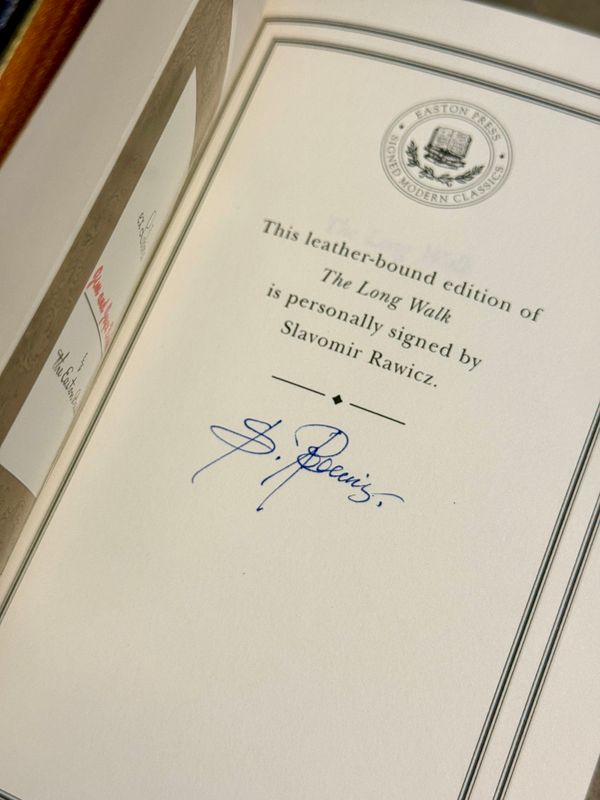 EASTON PRESS
SIGNED MODERN CLASSICS
This leather-bound edition of
The Long Walk
is personally signed by
Slavomir Rawicz.
S. Rawicz.